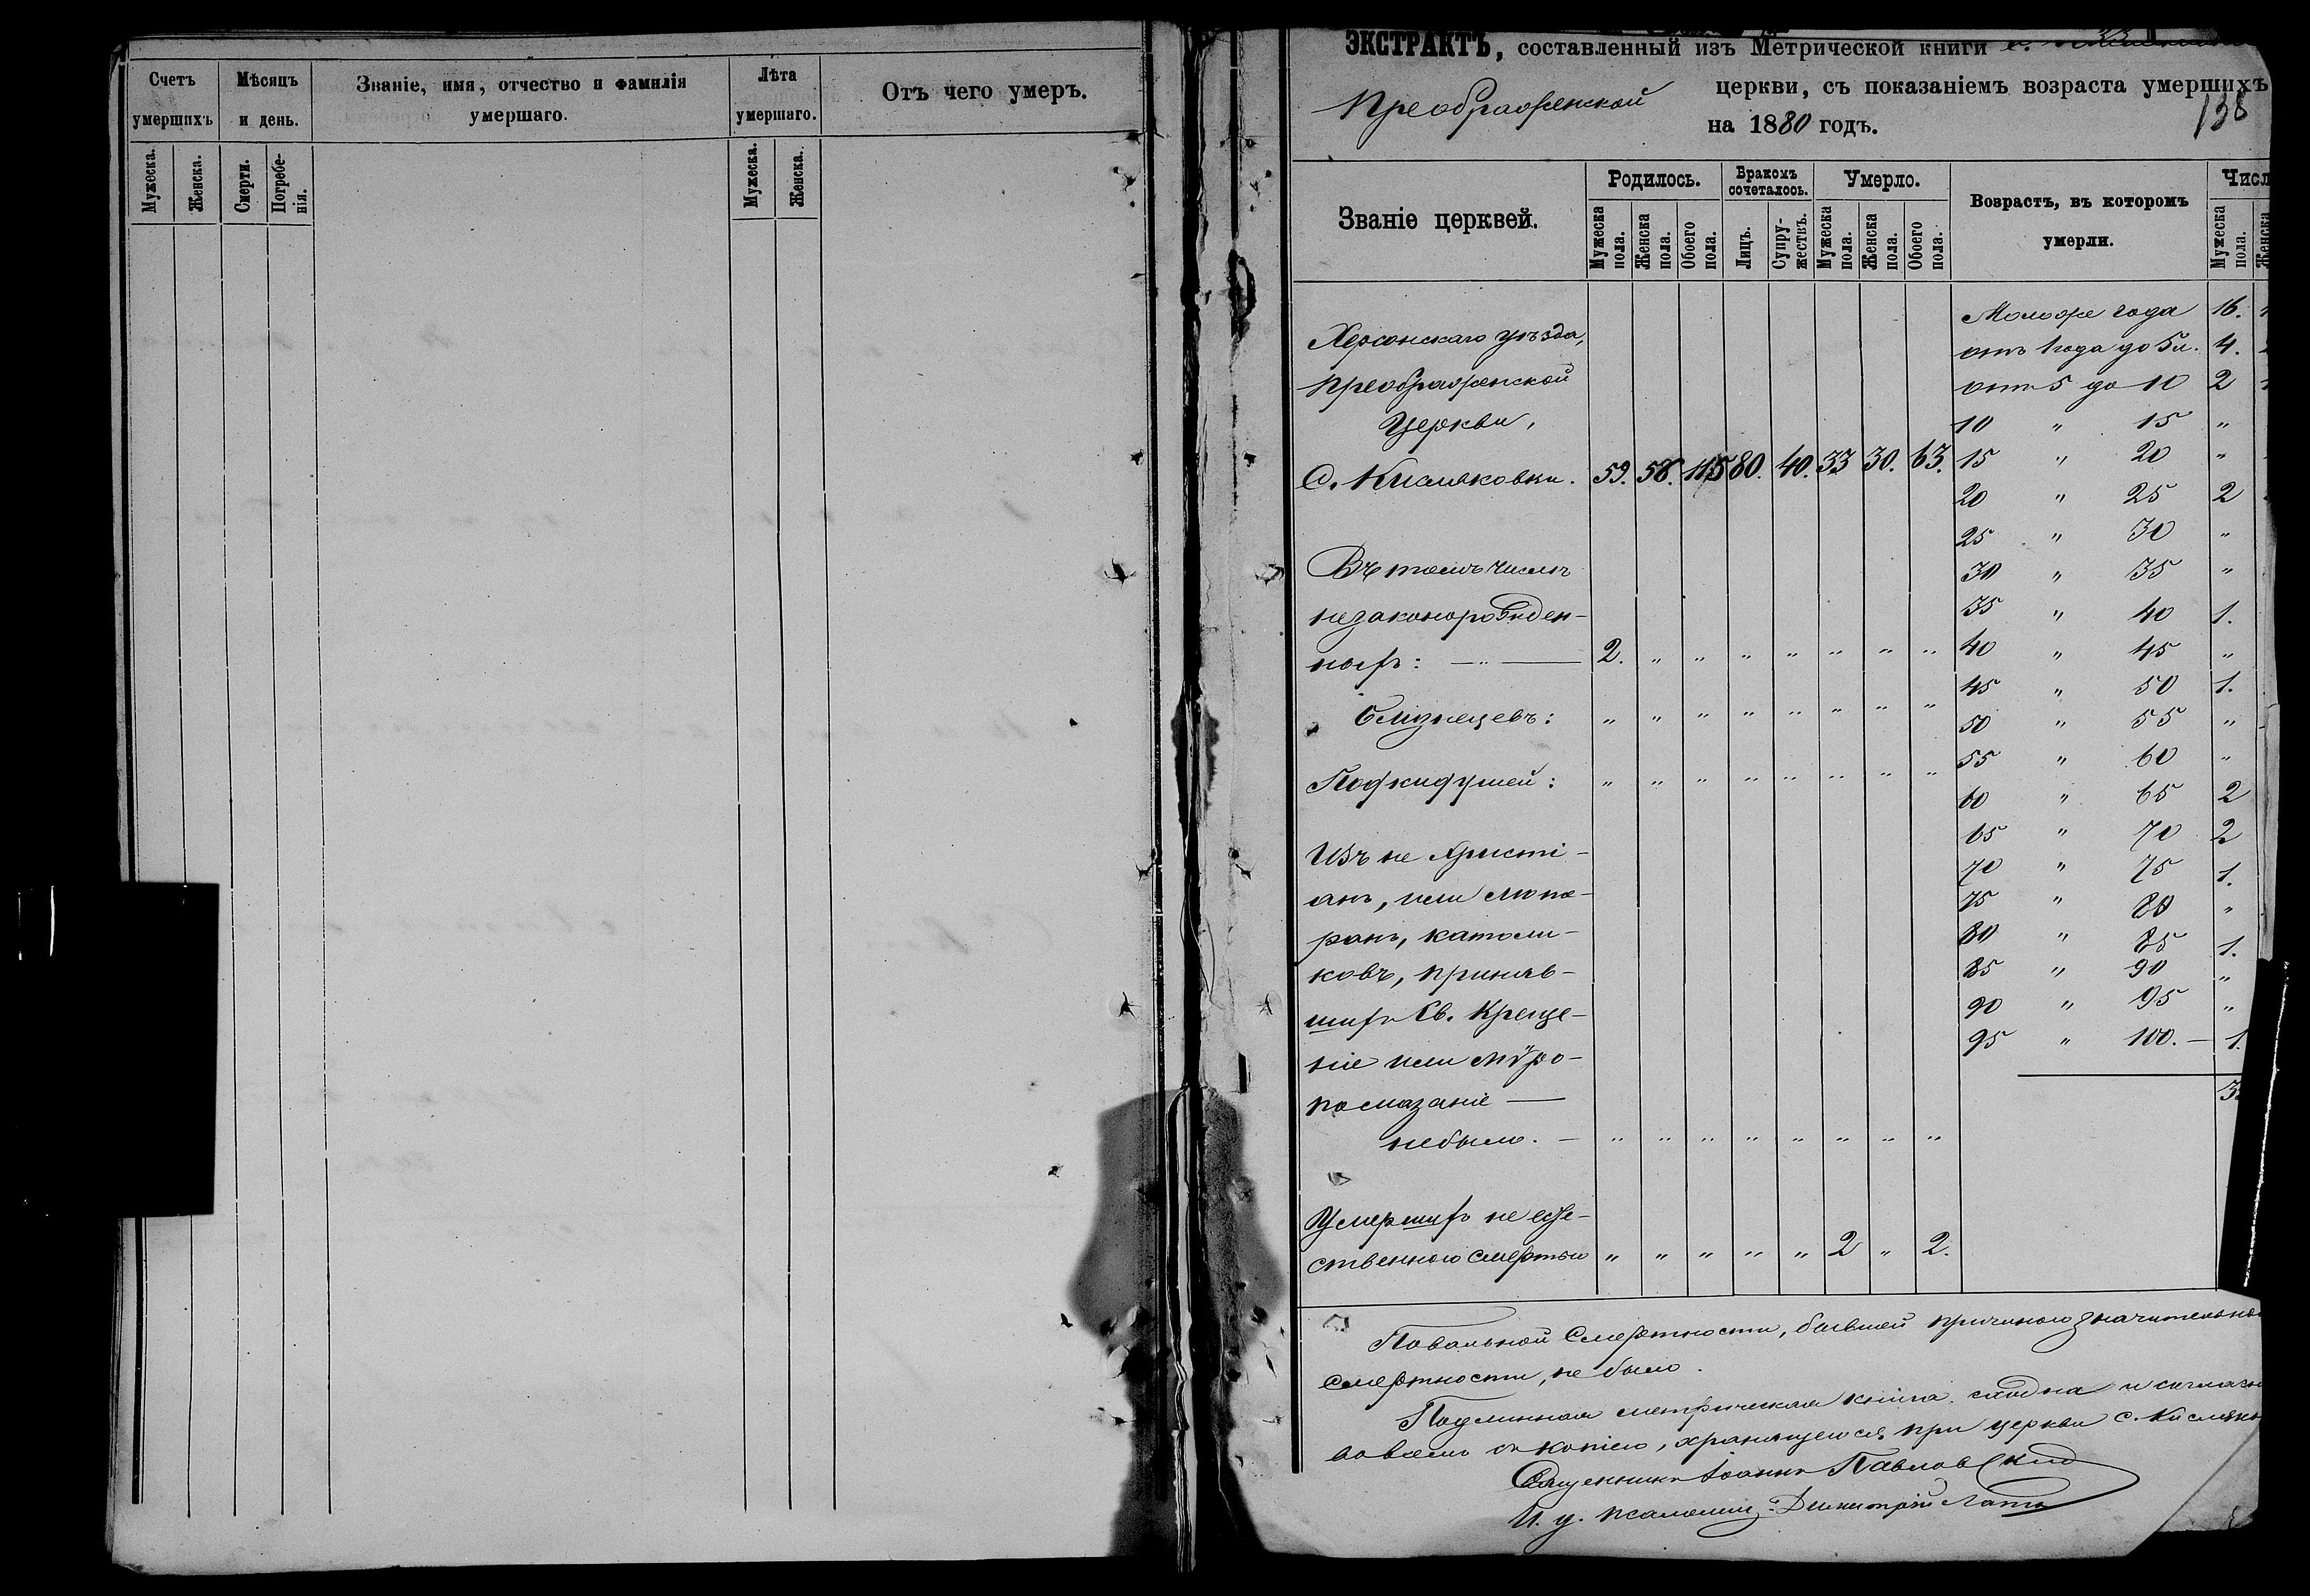 Счетъ умершихъ
Мѣсяцъ и день.
Званіе, имя, отчество и фамилія умершаго.
Лѣта умершаго.
Отъ чего умеръ.
Мужеска. Женска. Смерти. Погребенія. Мужеска. Женска.
ЭКСТРАКТЪ, составленный изъ Метрической книги с.
Преображенской церкви, съ показаніемъ возраста умершихъ
на 1880 годъ.
138
Званіе церквей. Родилось. Бракомъ сочеталось. Умерло. Возрастъ, въ которомъ умерли. Числ
Мужеска пола. Женска пола. Обоего пола. Лицъ. Супружествъ. Мужеска пола. Женска пола. Обоего пола. Мужеска пола. Женска
Херсонскаго уѣзда,
Преображенской
Церкви,
С. Кисляковки. 59. 58. 115 80. 40. 33 30. 63.
Въ томъ числѣ
незаконорожден-
ныхъ: — „ — 2. „ „ „ „ „ „ „
Близнецевъ: „ „ „ „ „ „ „ „
Подкидушей: „ „ „ „ „ „ „ „
Изъ не Христі-
анъ, или люте-
ранъ, католи-
ковъ, приняв-
шихъ Св. Креще-
ніе или мѵро-
помазаніе —
небыло. — „ „ „ „ „ „ „ „
Умершихъ не есте-
ственною смертью „ „ „ „ „ 2 „ 2.
Моложе года 16.
отъ 1 года до 5 л. 4.
отъ 5 до 10 2
10 „ 15 „
15 „ 20 „
20 „ 25 2
25 „ 30 „
30 „ 35 „
35 „ 40 1.
40 „ 45 „
45 „ 50 1.
50 „ 55 „
55 „ 60 „
60 „ 65 2
65 „ 70 2
70 „ 75 1.
75 „ 80 „
80 „ 85 1.
85 „ 90 „
90 „ 95 „
95 „ 100. — 1.
3
Повальной смертности, бывшей причиною значительно
смертности, не было.
Подлинная метрическая книга сходна и согласн
во всемъ съ копіею, хранящеюся при церкви с. Кисляк
Священникъ Іоаннъ Павловскій
И. д. псаломщ. Димитрій